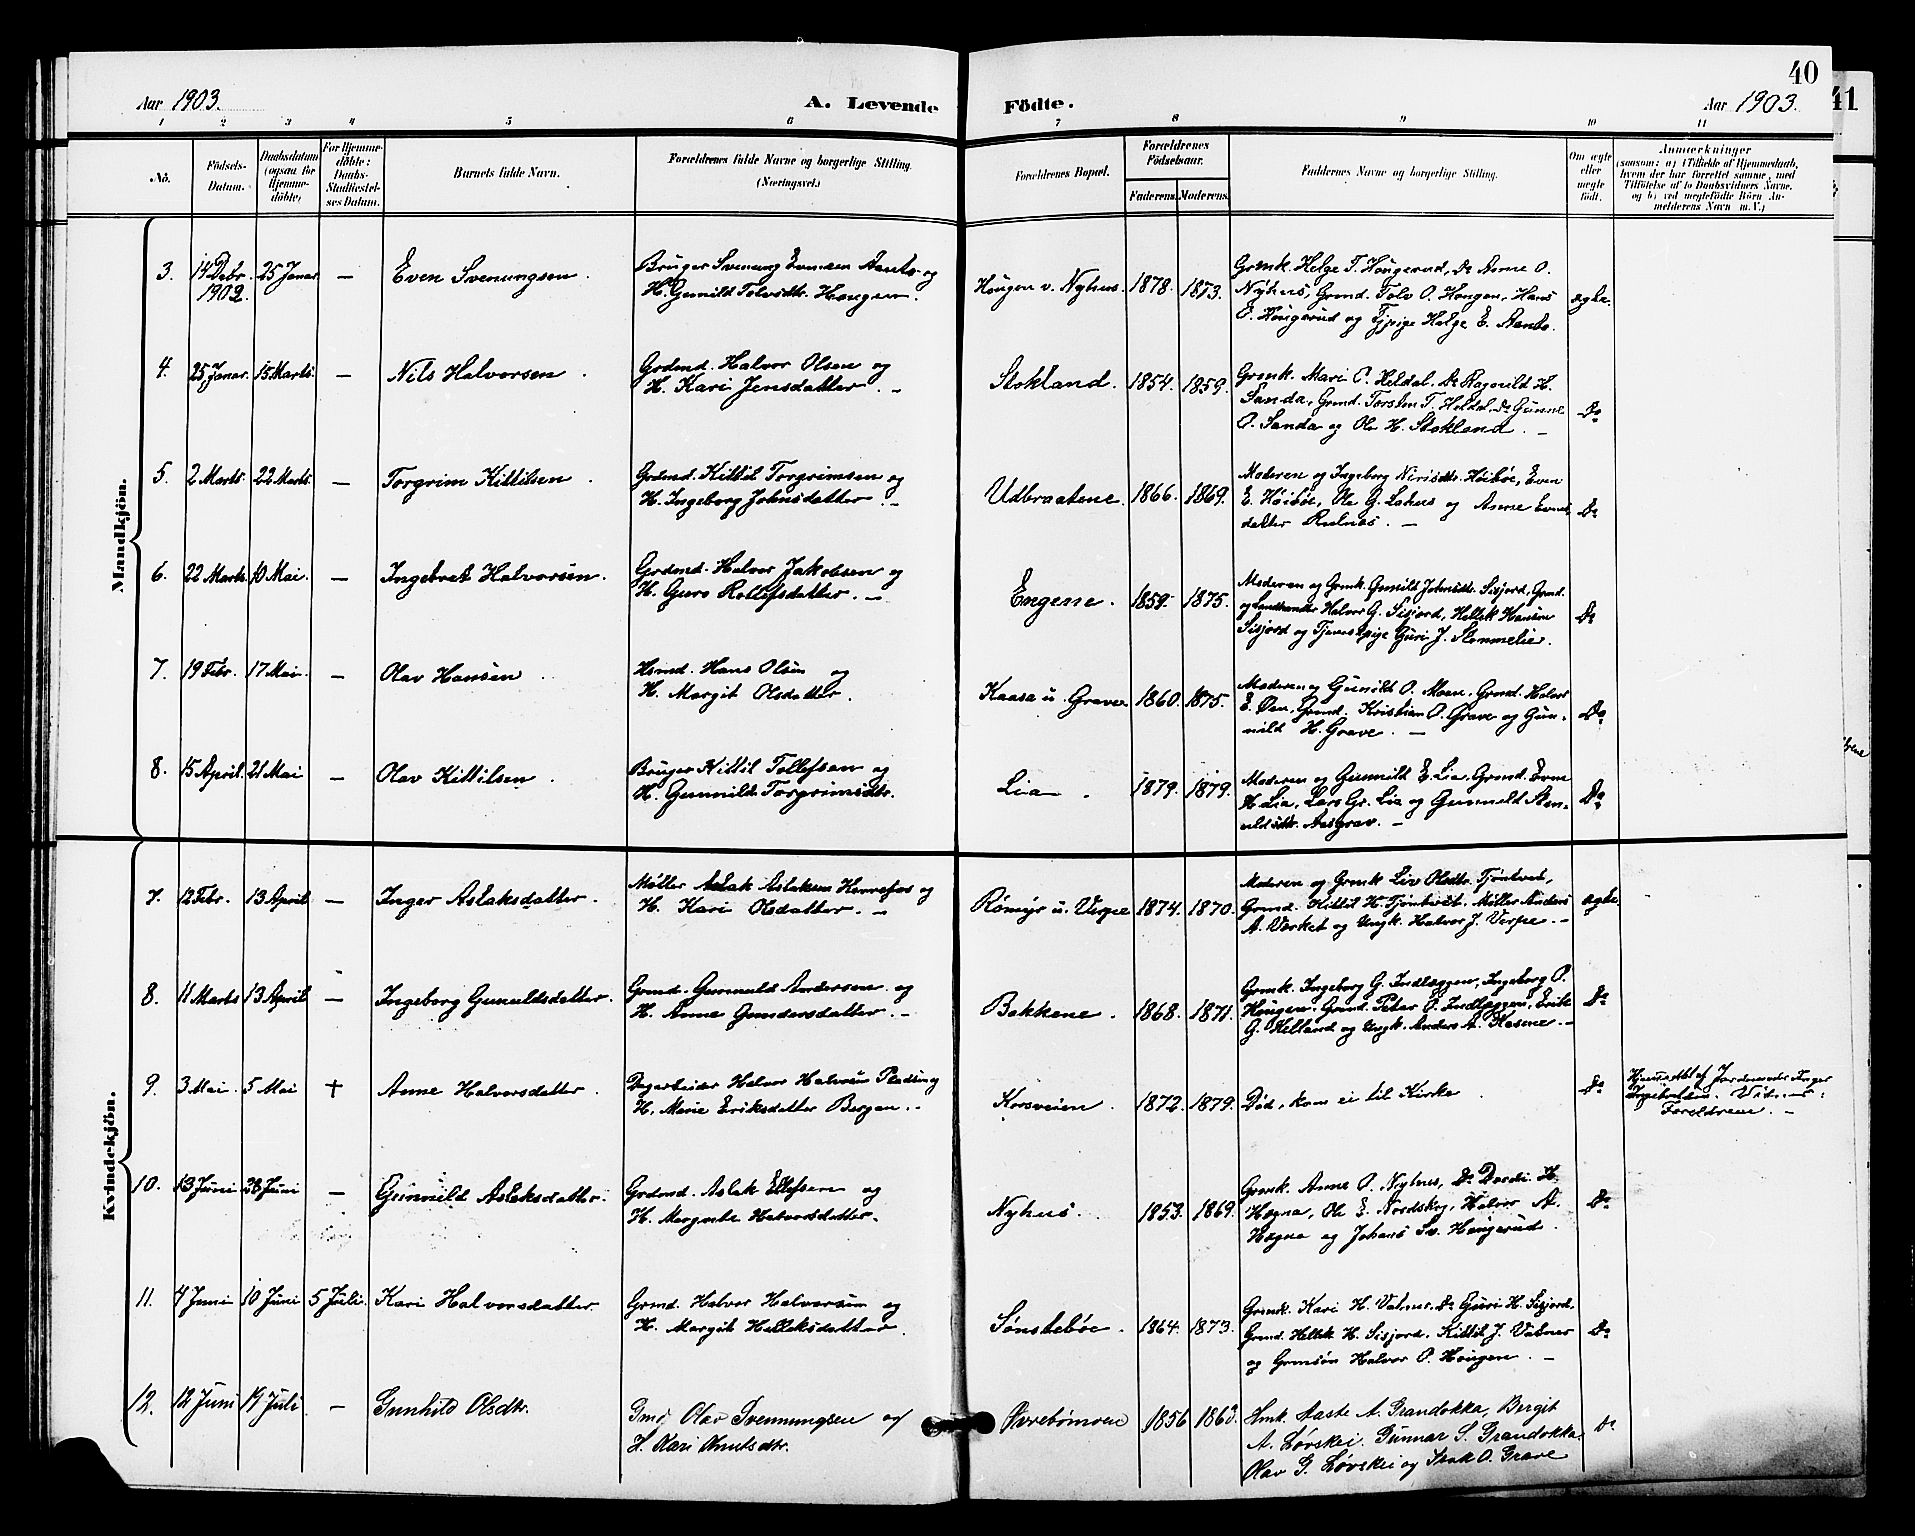 40
41
Aar 1903.
A. Levende
Födte.
Aar 1903.
1 2 3 4 5 6 7 8 9 10 11
No.
Födsels-
Datum.
Daabsdatum
(ogsaa for
Hjemme-
döbte)
For Hjemme-
döbte:
Daabs-
Stadfæstel-
ses Datum.
Barnets fulde Navn.
Forældrenes fulde Navne og borgerlige Stilling.
(Næringsvei.)
Forældrenes Bopæl.
Forældrenes
Födselsaar.
Faderens.
Moderens.
Faddernes Navne og borgerlige Stilling.
Om ægte
eller
uegte
födt.
Anmærkninger
(saasom: a) i Tilfælde af Hjemmedaab,
hvem der har forrettet samme, med
Tilföielse af to Daabsvidners Navne,
og b) ved uegtefödte Börn An-
melderens Navn m. V.)
Mandkjön.
3. 14 Debr. 1902 25 Januar — Even Svenungsen.
Bruger Svenung Evensen Aanto og
H. Gunild Tolvsdtr. Haugen.
Haugen v. Nyhus. 1878. 1873.
Grmk. Helge T. Haugerud, Do Anne O.
Nyhus, Grmd. Tolv O. Haugen, Hans
O. Haugerud og Tjpige Helge E. Aanto.
ægte.
4. 25 Januar. 15 Marts. — Nils Halvorsen.
Grdmd. Halvor Olsen og
H. Kari Jensdatter. —
Stokland. 1854. 1859.
Grmk. Mari P. Heldal. Do Ragnild H.
Sanda, Grmd. Torsten T. Heldal, Do Gunne
O. Sanda og Ole H. Stokland. —
Do
5. 2 Marts. 22 Marts. — Torgrim Kittilsen.
Grdmd. Kittil Torgrimsen og
H. Ingeborg Johnsdatter. —
Udbraatene. 1866. 1869.
Moderen og Ingeborg Nirisdtr. Höibøe, Even
E. Höibøe, Ole G. Lahus og Anne Evens-
datter Rulnæs. —
Do
6. 22 Marts. 10 Mai. — Ingebret Halvorsen.
Grdmd. Halvor Jakobsen og
H. Guro Rollefsdatter. —
Engene. 1859. 1875.
Moderen og Grmk. Gunild Johnsdtr. Sisjord, Grmd.
og Halvor G. Sisjord, Hellek Hansen
Sisjord og Tjenestpige Guri J. Stemmelie.
Do
7. 19 Febr. 17 Mai. — Olav Hansen
Hsmd. Hans Olsen og
H. Margit Olsdatter.
Kaasa u. Grave 1860. 1875.
Moderen og Gunild O. Moen. Grmd. Halvor
E. Øen, Grmd. Kristian O. Grave og Gun-
nild H. Grave. —
Do
8. 15 April. 21 Mai — Olav Kittilsen.
Bruger Kittil Tollefsen og
H. Gunnild Torgrimsdtr.
Lia. 1879. 1879.
Moderen og Gunnild E. Lia, Grmd. Even
H. Lia, Lars Gr. Lia og Gunnild Sten-
uldsdtr. Aasgrav. —
Do
Kvindekjön.
7. 12 Febr. 13 April — Inger Aslaksdatter.
Møller Aslak Aslaksen Hannefos og
H. Kari Olsdatter. —
Römyr u. Verpe 1874. 1870.
Moderen og Grmk Liv Olsdtr. Tjöntveit,
Grmd. Kittil H. Tjöntveit. Møller Anders
A. Verket og Ungk. Halvor J. Verpe. —
ægte.
8. 11 Marts 13 April — Ingeborg Gunuldsdatter.
Grmd. Gunnuld Andersen og
H. Anne Gundersdatter. —
Bakkene. 1868. 1871.
Grmk. Ingeborg G. Indlæggen, Ingeborg P.
Haugen. Grmd. Peter O. Indlæggen, Erik
G. Helland og Ungk. Anders A. Kasene. —
Do
9. 3 Mai. 5 Mai † Anne Halvorsdatter.
Dagarbeider Halvor Halvorsen Pladsen og
H. Marie Eriksdatter Bergan. —
Korsveien. 1872. 1879.
Död, kom ei til Kirke.
Do
Hjemmedöbt af Jordemoder Inger
Vidner:
Foreldrene. —
10. 13 Juni 28 Juni — Gunnild Aslaksdatter.
Grdmd. Aslak Ellefsen og
H. Margrete Halvorsdatter.
Nyhus. 1853. 1869.
Grmk. Anne O. Nyhus, Do Dordi H.
Høgna, Ole E. Nordskog, Halvor A.
Høgna og Johans Sv. Haugerud.
Do
11. 4 Juni 10 Juni 5 Juli. Kari Halvorsdatter.
Grmd. Halvor Halvorsen og
H. Margit Helleksdatter.
Sönstebøe. 1864. 1873.
Grmk. Kari H. Vatnar. Do Guri H. Sisjord.
Grmd. Hellek H. Sisjord. Kittil J. Vatnar
og Grmsön Halvor P. Haugen. —
Do
12. 12 Juni 19 Juli. — Gunhild Olsdtr.
Gmd Olav Svennungsen og
H. Kari Knutsdtr.
Øvrebömoen 1856 1863.
Hmk. Aaste A. Grandokka, Bergit
A. Løvskei. Gunnar S. Grandokka
Olav G. Løvskei og Isak O. Grave
Do